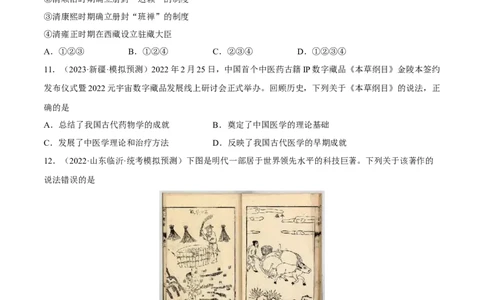 ③清康熙时期确立册封“班禅”的制度
④清雍正时期在西藏设立驻藏大臣
A．①②③ B．①②④ C．②③④ D．①②③④
11．（2023·新疆·模拟预测）2022年2月25日，中国首个中医药古籍IP数字藏品《本草纲目》金陵本签约
发布仪式暨2022元宇宙数字藏品发展线上研讨会正式举办。回顾历史，下列关于《本草纲目》的说法，正
确的是
A．总结了我国古代药物学的成就 B．奠定了中国医学的理论基础
C．发展了中医学理论和治疗方法 D．反映了我国古代医学的早期成就
12．（2022·山东临沂·统考模拟预测）下图是明代一部居于世界领先水平的科技巨著。下列关于该著作的
说法错误的是